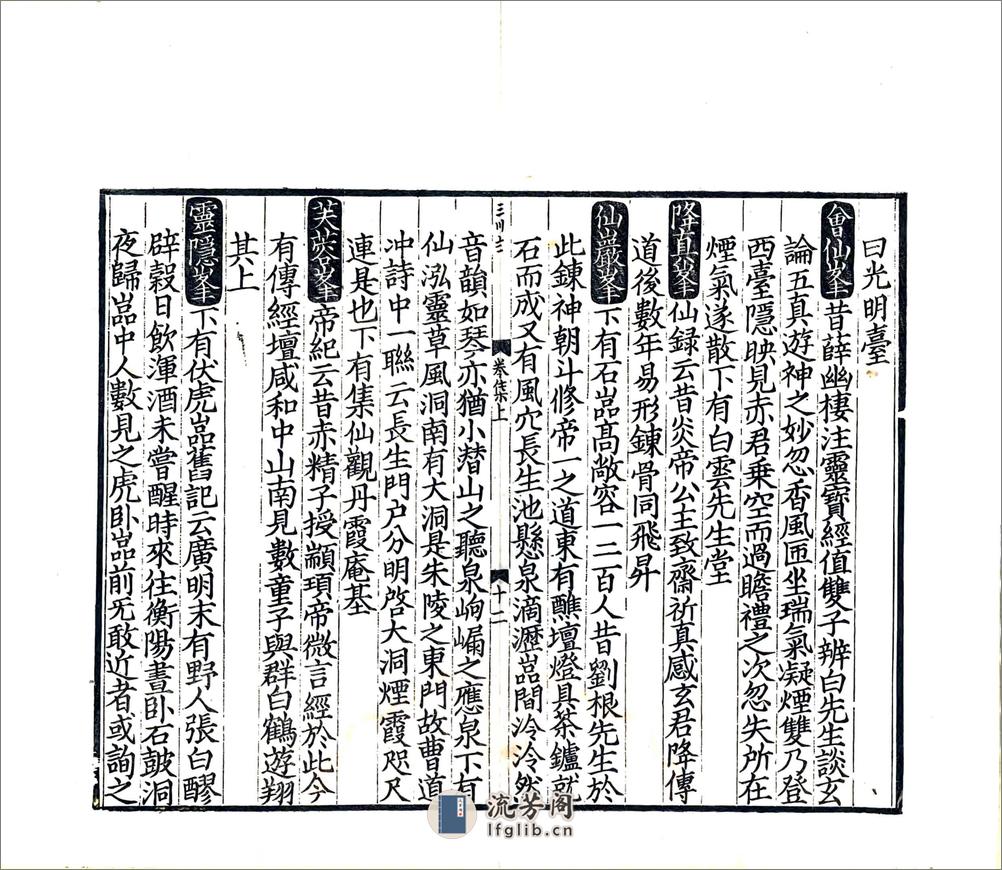 曰光明臺
會仙峯昔薛幽棲注靈寶經值雙子辨白先生談玄
論五真游神之妙忽香風匝坐瑞氣凝煙雙乃登
西臺隱映見赤君乗空而過瞻禮之次忽失所在
煙氣遂散下有白雲先生堂
降真峯仙録云昔炎帝公主致齋祈真感玄君降傳
道後數年易形鍊骨同飛昇
仙巖峯下有石嵓髙敞容一二百人昔劉根先生於
此鍊神朝斗修帝一之道東有醮壇燈具茶鑪就
石而成又有風穴長生池懸泉滴瀝嵓間泠泠然
卷集上
十二
音韻如琴亦猶小朁山之聽泉岣嶁之應泉下有
仙泓靈草風洞南有大洞是朱陵之東門故曹道
冲詩中一聯云長生門户分明啓大洞煙霞咫尺
連是也下有集仙觀丹霞庵基
芙蓉峯帝紀云昔赤精子授顓頊帝微言經於此今
有傳經壇咸和中山南見數童子與群白鶴遊翔
其上
靈隱峯下有伏虎嵓舊記云廣明末有野人張白膠
辟穀日飲渾酒未嘗醒時來往衡陽晝卧石皷洞
夜歸嵓中人數見之虎卧嵓前旡敢近者或詢之
流芳阁
lfglib.cn